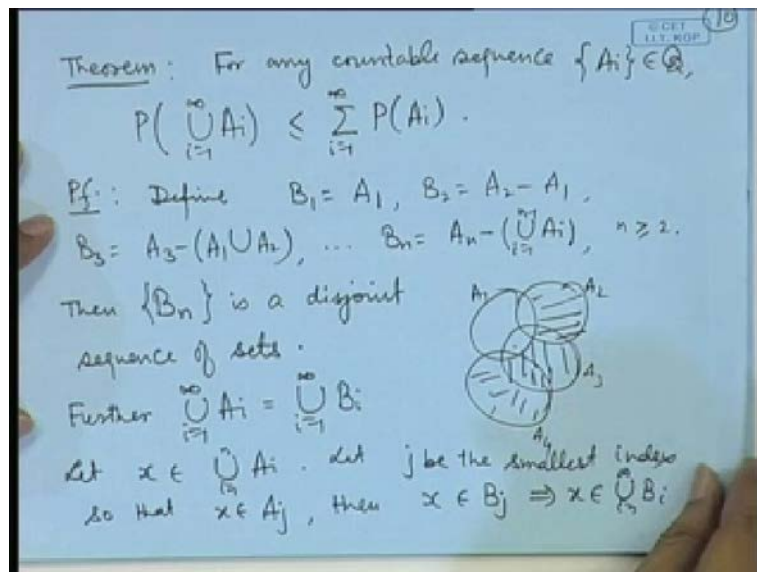 © CET
I.I.T. KGP
10
Theorem : For any countable sequence {Ai} ∈ Q,
P( ∞⋃i=1 Ai) ≤ ∞Σi=1 P(Ai) .
Pf : Define B1 = A1, B2 = A2 − A1 ,
B3 = A3 − (A1 ∪ A2), ... Bn = An − (n-1⋃i=1 Ai), n ≥ 2.
Then {Bn} is a disjoint
sequence of sets .
A1 A2
A3
A4
Further ∞⋃i=1 Ai = ∞⋃i=1 Bi
Let x ∈ ⋃ Ai . Let j be the smallest index
so that x ∈ Aj , then x ∈ Bj ⇒ x ∈ ∞⋃ Bi